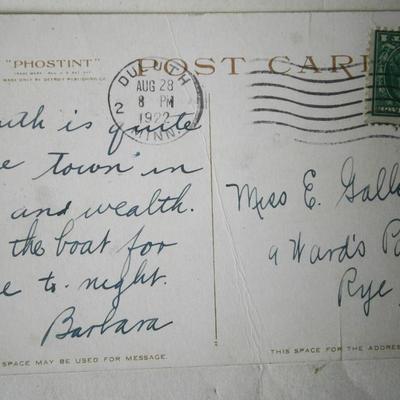 "PHOSTINT"
MADE ONLY BY DETROIT PUBLISHING CO.
POST CAR
DULUTH
AUG 28
8 PM
1922
MINN.
2
uth is quite
e town in
and wealth.
the boat for
e to-night.
Barbara
Miss E. Gall
9 Ward's P
Rye
SPACE MAY BE USED FOR MESSAGE.
THIS SPACE IS FOR THE ADDRES